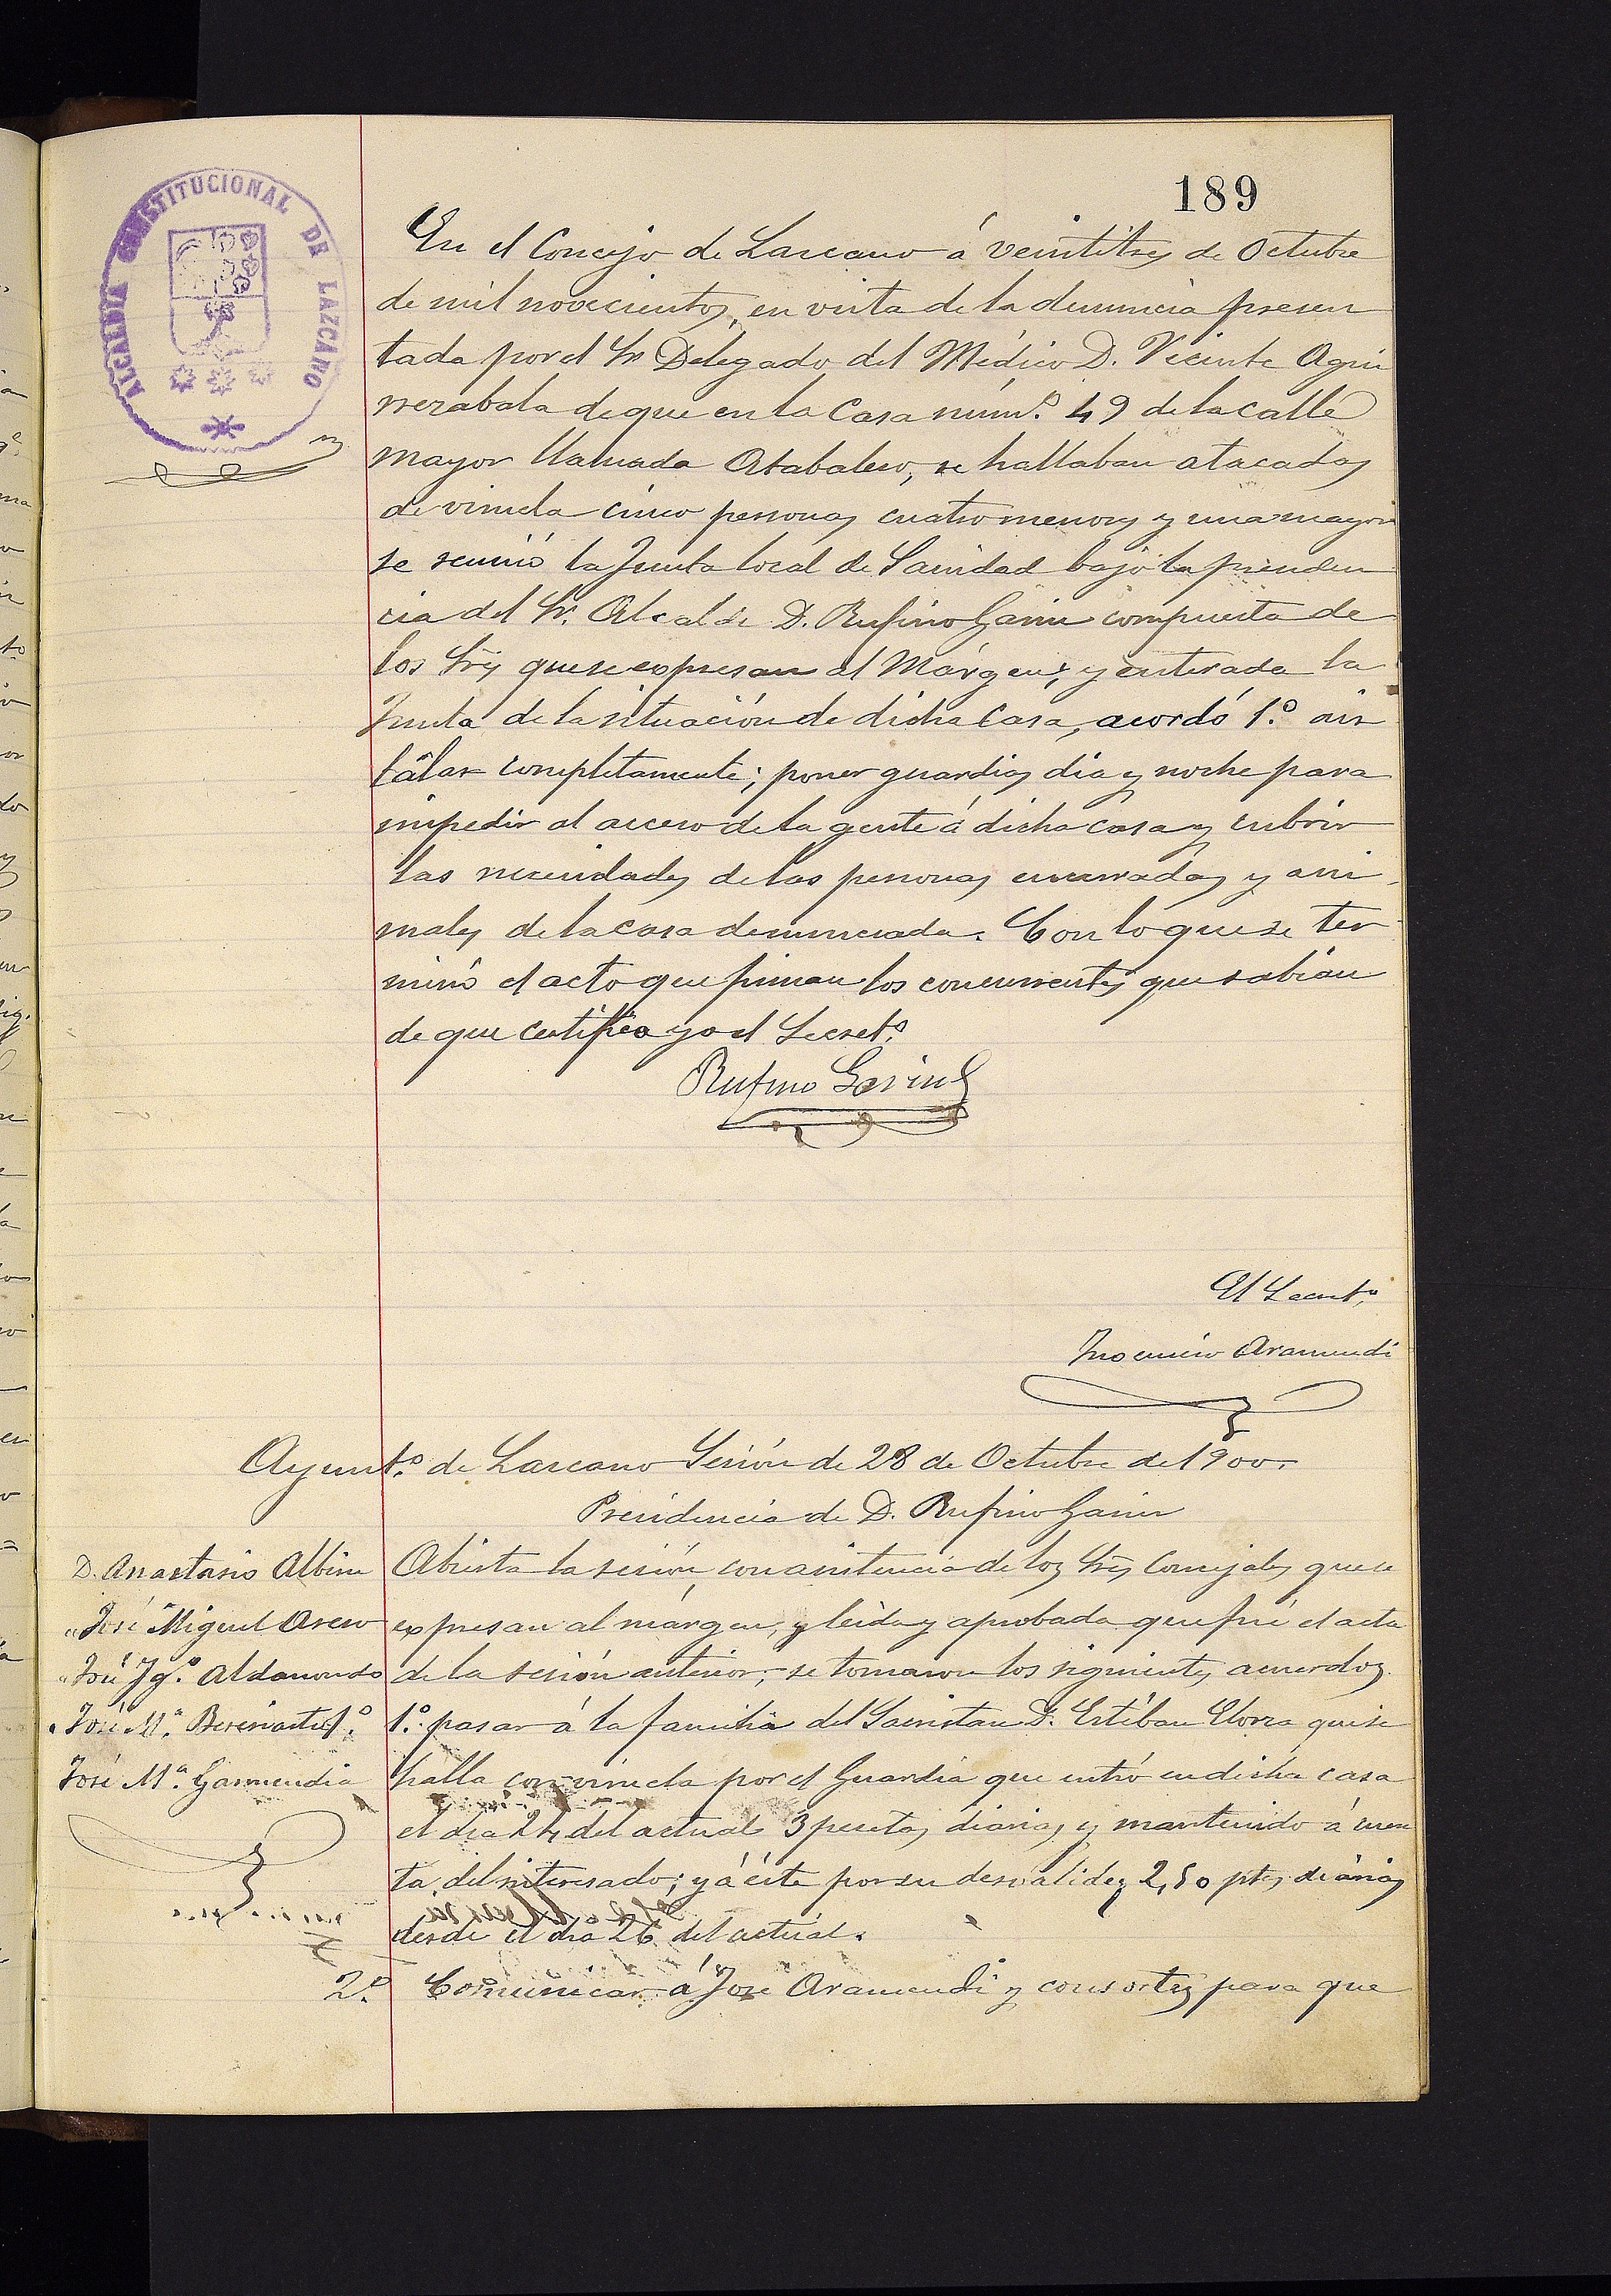 189
ALCALDÍA CONSTITUCIONAL DE LAZCANO
En el Concejo de Lazcano á veintitres de Octubre
de mil novecientos, en vista de la denuncia presen
tada por el Sr Delegado del Médico D. Vicente Agui
rrezabala de que en la Casa núm.º 49 de la calle
mayor llamada Atabalero, se hallaban atacadas
de viruela cinco personas cuatro menores y una mayor
se reunió la Junta local de Sanidad bajo la presiden
cia del Sr. Alcalde D. Rufino Garin compuesta de
los Sres que se expresan al Márgen; y enterada la
Junta de la situación de dicha Casa, acordó 1.º ais
lar completamente; poner guardias dia y noche para
impedir al acceso de la gente á dicha casa y cubrir
las necesidades de las personas encerradas y ani
males de la casa denunciada. Con lo que se ter
minó el acto que firman los concurrentes que sabian
de que certifico yo el Secret.º
Rufino Garin
El Secret.º
Inocencio Aramendi
Ayunt.º de Lazcano Sesión de 28 de Octubre de 1900.
Presidencia de D. Rufino Garin
D. Anastasio Albisu
" José Miguel Otero
" José Ig.º Aldanondo
" José M.ª Beresiartu
José M.ª Garmendia
Abierta la sesión, con asistencia de los Sres Concejales que se
expresan al márgen, y leida y aprobada que fué el acta
de la sesión anterior, se tomaron los siguientes acuerdos.
1.º pasar á la familia del Sacristan D. Estéban Elorza que se
halla con viruela por el Guardia que entró en dicha casa
el dia 24 del actual 3 pesetas diarias y mantenido á cuen
ta del interesado; y á éste por su desvalidez 2,50 ptas diarias
desde el dia 26 del actual.
2.º Comunicar á José Aramendi y consortes para que